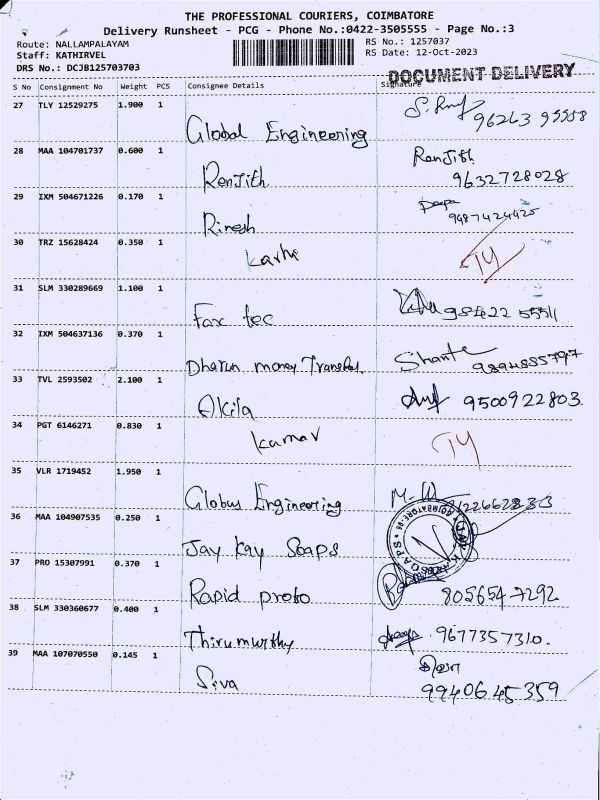 THE PROFESSIONAL COURIERS, COIMBATORE
Delivery Runsheet - PCG - Phone No.:0422-3505555 - Page No.:3
Route: NALLAMPALAYAM RS No.: 1257037
Staff: KATHIRVEL RS Date: 12-Oct-2023
DRS No.: DCJB125703703
DOCUMENT DELIVERY
S No Consignment No Weight PCS Consignee Details Signature
27 TLY 12529275 1.900 1
Global Engineering 96263 95558
28 MAA 104701737 0.600 1 Renjith
Renjith 9632728028
29 IXM 504671226 0.170 1
Rinesh 9487424425
30 TRZ 15628424 0.350 1
TY
31 SLM 330289669 1.100 1
Fax tec 98422 55511
32 IXM 504637136 0.370 1
Dharun money Transfer
33 TVL 2593502 2.100 1
Akila 9500922803.
34 PGT 6146271 0.830 1
TY
35 VLR 1719452 1.950 1
Globus Engineering
36 MAA 104907535 0.250 1
Jay Kay Soaps
37 PRO 15307991 0.370 1
Rapid proto 8056547292
38 SLM 330360677 0.400 1
Thirumurthy 9677357310.
39 MAA 107070550 0.145 1
Siva 9940645359